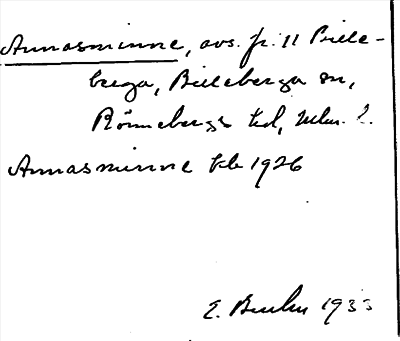 Annasminne, avs. fr. 11 Bille-
berga, Billeberga sn,
Rönnebergs hd, Mlm. l.
Annasminne 1926
E. 1933